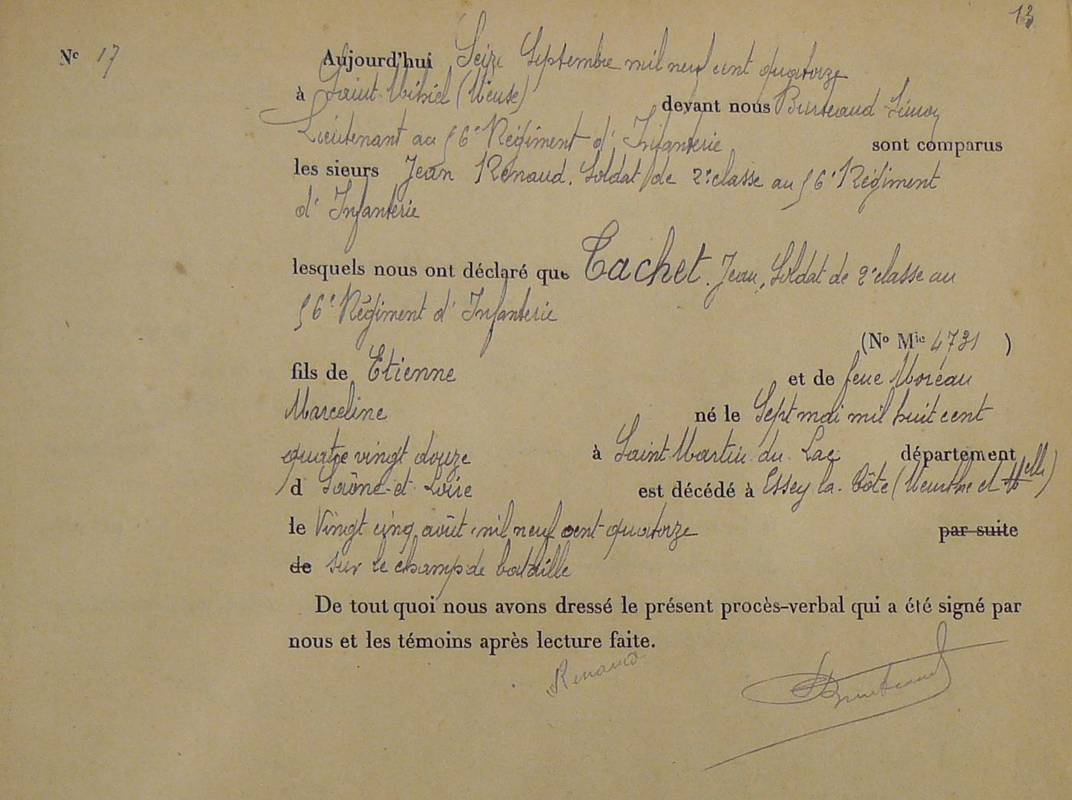 13
Nº 17
Aujourd'hui Seize Septembre mil neuf cent quatorze
à Saint-Mihiel (Meuse) devant nous Burteaud Simon
Lieutenant au 56e Régiment d'Infanterie sont comparus
les sieurs Jean Renaud. Soldat de 2e classe au 56e Régiment
d'Infanterie
lesquels nous ont déclaré que Cachet. Jean, Soldat de 2e classe au
56e Régiment d'Infanterie
(Nº Mle 4731 )
fils de Etienne et de feue Moréau
Marceline né le Sept mai mil huit cent
quatre vingt douze à Saint Martin du Lac département
d Saône-et-Loire est décédé à Essey la Côte (Meurthe et Mlle)
le Vingt cinq août mil neuf cent quatorze par suite
de sur le champ de bataille
De tout quoi nous avons dressé le présent procès-verbal qui a été signé par
nous et les témoins après lecture faite.
Renaud Burteaud